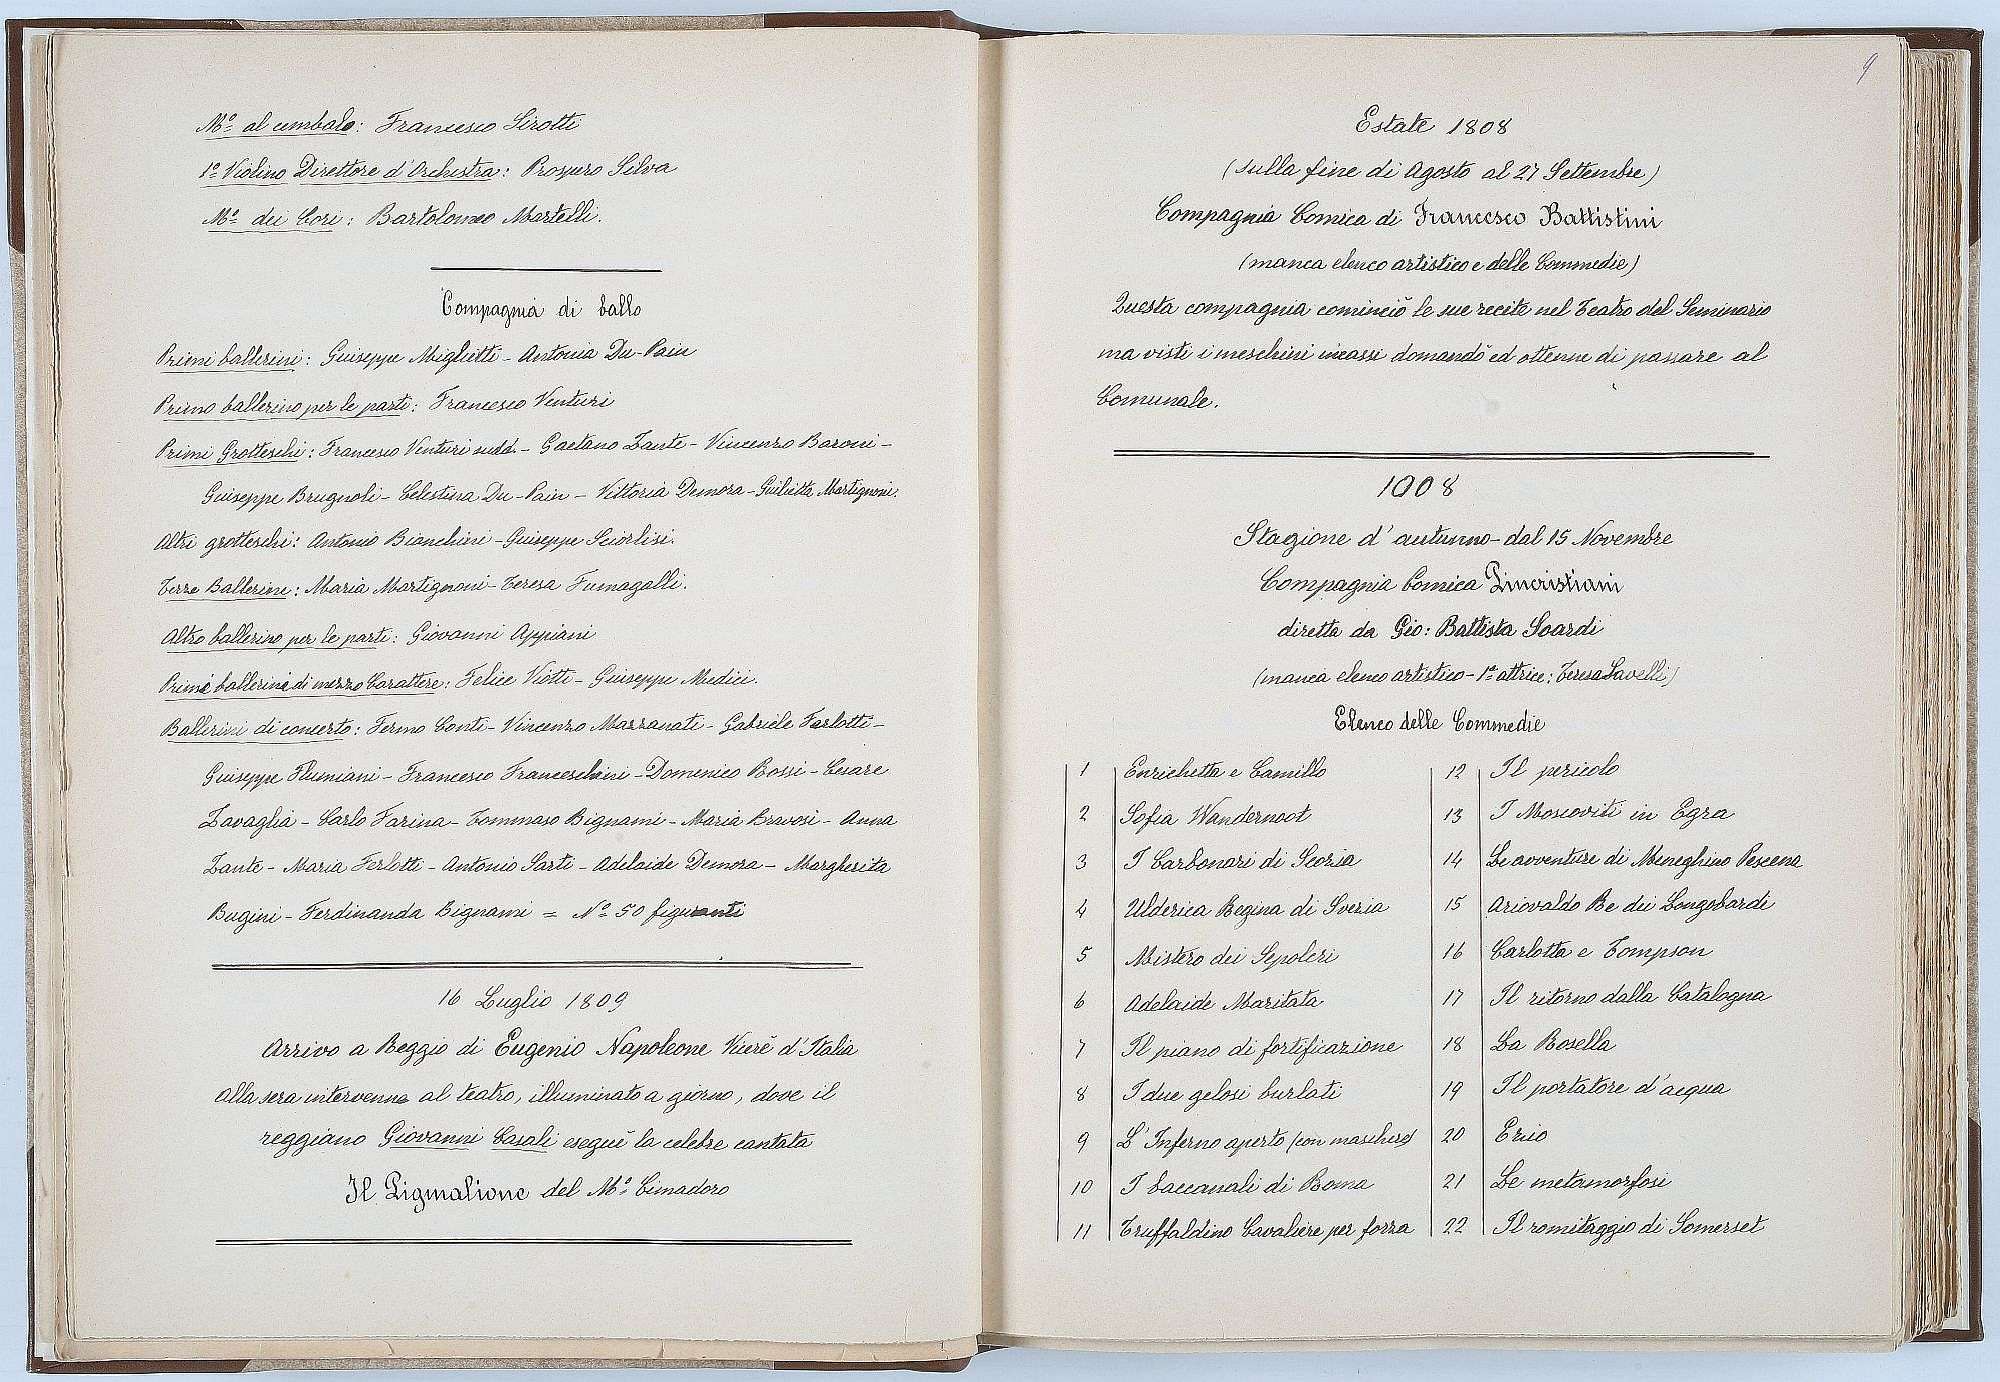 Mº al cembalo: Francesco Sirotti
1º Violino Direttore d'Orchestra: Prospero Silva
Mº dei Cori: Bartolomeo Martelli.
Compagnia di ballo
Primi ballerini: Giuseppe Miglietti - Antonia Du-Pain
Primo ballerino per le parti: Francesco Venturi
Primi Grotteschi: Francesco Venturi sudd. - Gaetano Zante - Vincenzo Baroni -
Giuseppe Brugnoli - Celestina Du-Pain - Vittoria Demora - Giulietta Martignoni.
Altri grotteschi: Antonio Bianchini - Giuseppe Sciorlisi.
Terze Ballerine: Maria Martignoni - Teresa Fumagalli.
Altro ballerino per le parti: Giovanni Appiani
Primi ballerini di mezzo Carattere: Felice Viotti - Giuseppe Medici.
Ballerini di concerto: Fermo Conti - Vincenzo Mazzanati - Gabriele Ferlotti -
Giuseppe Flumiani - Francesco Franceschini - Domenico Rossi - Cesare
Zavaglia - Carlo Farina - Tommaso Bignami - Maria Bravosi - Anna
Zante - Maria Ferlotti - Antonio Sarti - Adelaide Demora - Margherita
Bugini - Ferdinanda Bignami = Nº 50 figuranti
16 Luglio 1809
Arrivo a Reggio di Eugenio Napoleone Vicerè d'Italia
Alla sera intervenne al teatro, illuminato a giorno, dove il
reggiano Giovanni Casali eseguì la celebre cantata
Il Pigmalione del Mº Cimadoro
9
Estate 1808
(sulla fine di Agosto al 27 Settembre)
Compagnia Comica di Francesco Battistini
(manca elenco artistico e delle Commedie)
Questa compagnia cominciò le sue recite nel Teatro del Seminario
ma visti i meschini incassi domandò ed ottenne di passare al
Comunale.
1808
Stagione d'autunno - dal 15 Novembre
Compagnia Comica Pincristiani
diretta da Gio: Battista Soardi
(manca elenco artistico - 1ª attrice: Teresa Savelli)
Elenco delle Commedie
1 Enrichetta e Camillo
2 Sofia Wandernoot
3 I Carbonari di Scozia
4 Ulderica Regina di Svezia
5 Mistero dei Sepolcri
6 Adelaide Maritata
7 Il piano di fortificazione
8 I due gelosi burlati
9 L'Inferno aperto (con maschere)
10 I baccanali di Roma
11 Truffaldino Cavaliere per forza
12 Il pericolo
13 I Moscoviti in Egra
14 Le avventure di Meneghino Pescena
15 Ariovaldo Re dei Longobardi
16 Carlotta e Tompson
17 Il ritorno dalla Catalogna
18 La Rosella
19 Il portatore d'acqua
20 Erico
21 Le metamorfosi
22 Il romitaggio di Somerset